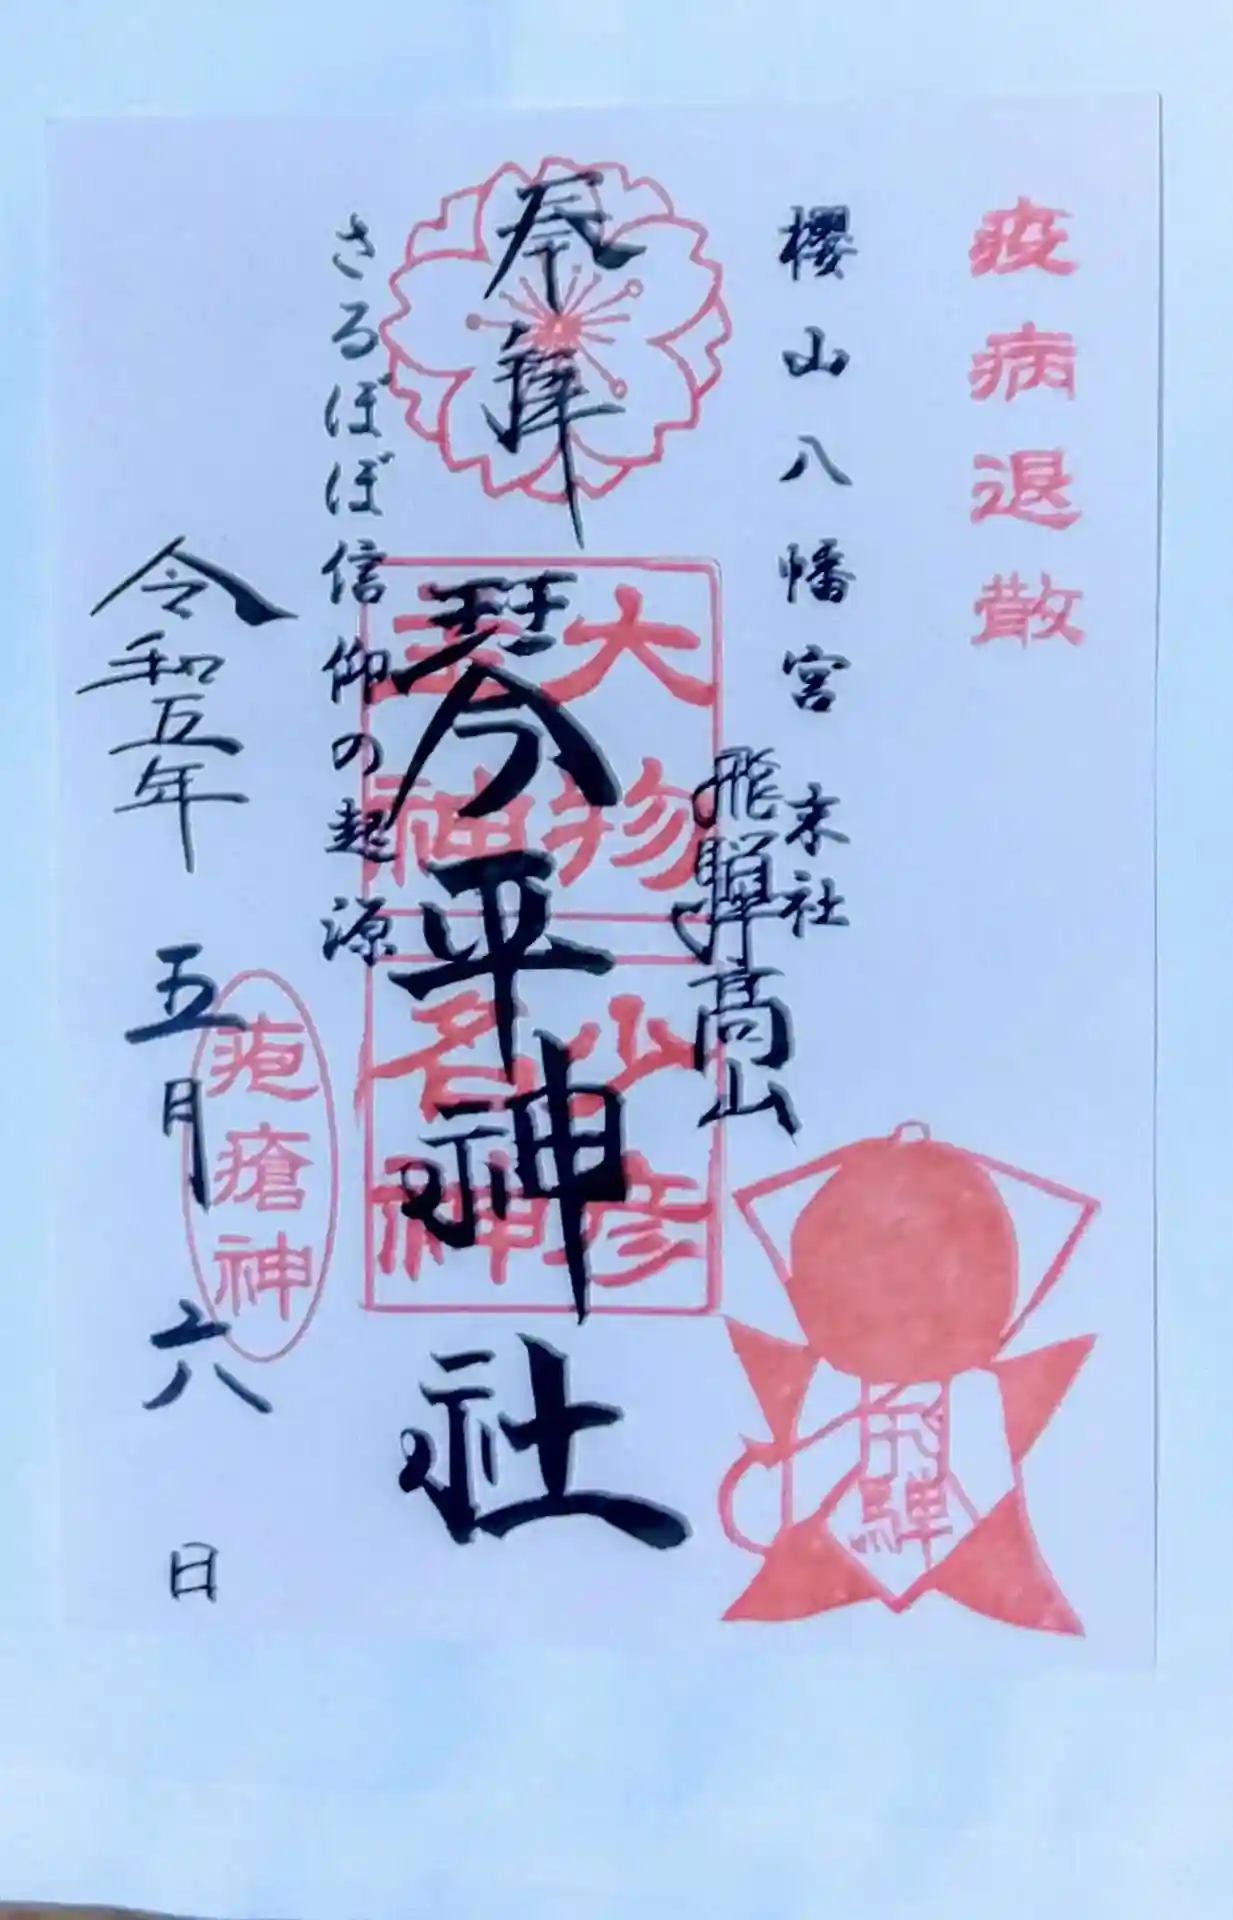 疫病退散
櫻山八幡宮 末社
飛騨高山
奉拝
琴平神社
大物
主神
少彦
名神
さるぼぼ信仰の起源
疱瘡神
令和五年 五月 六日
飛騨